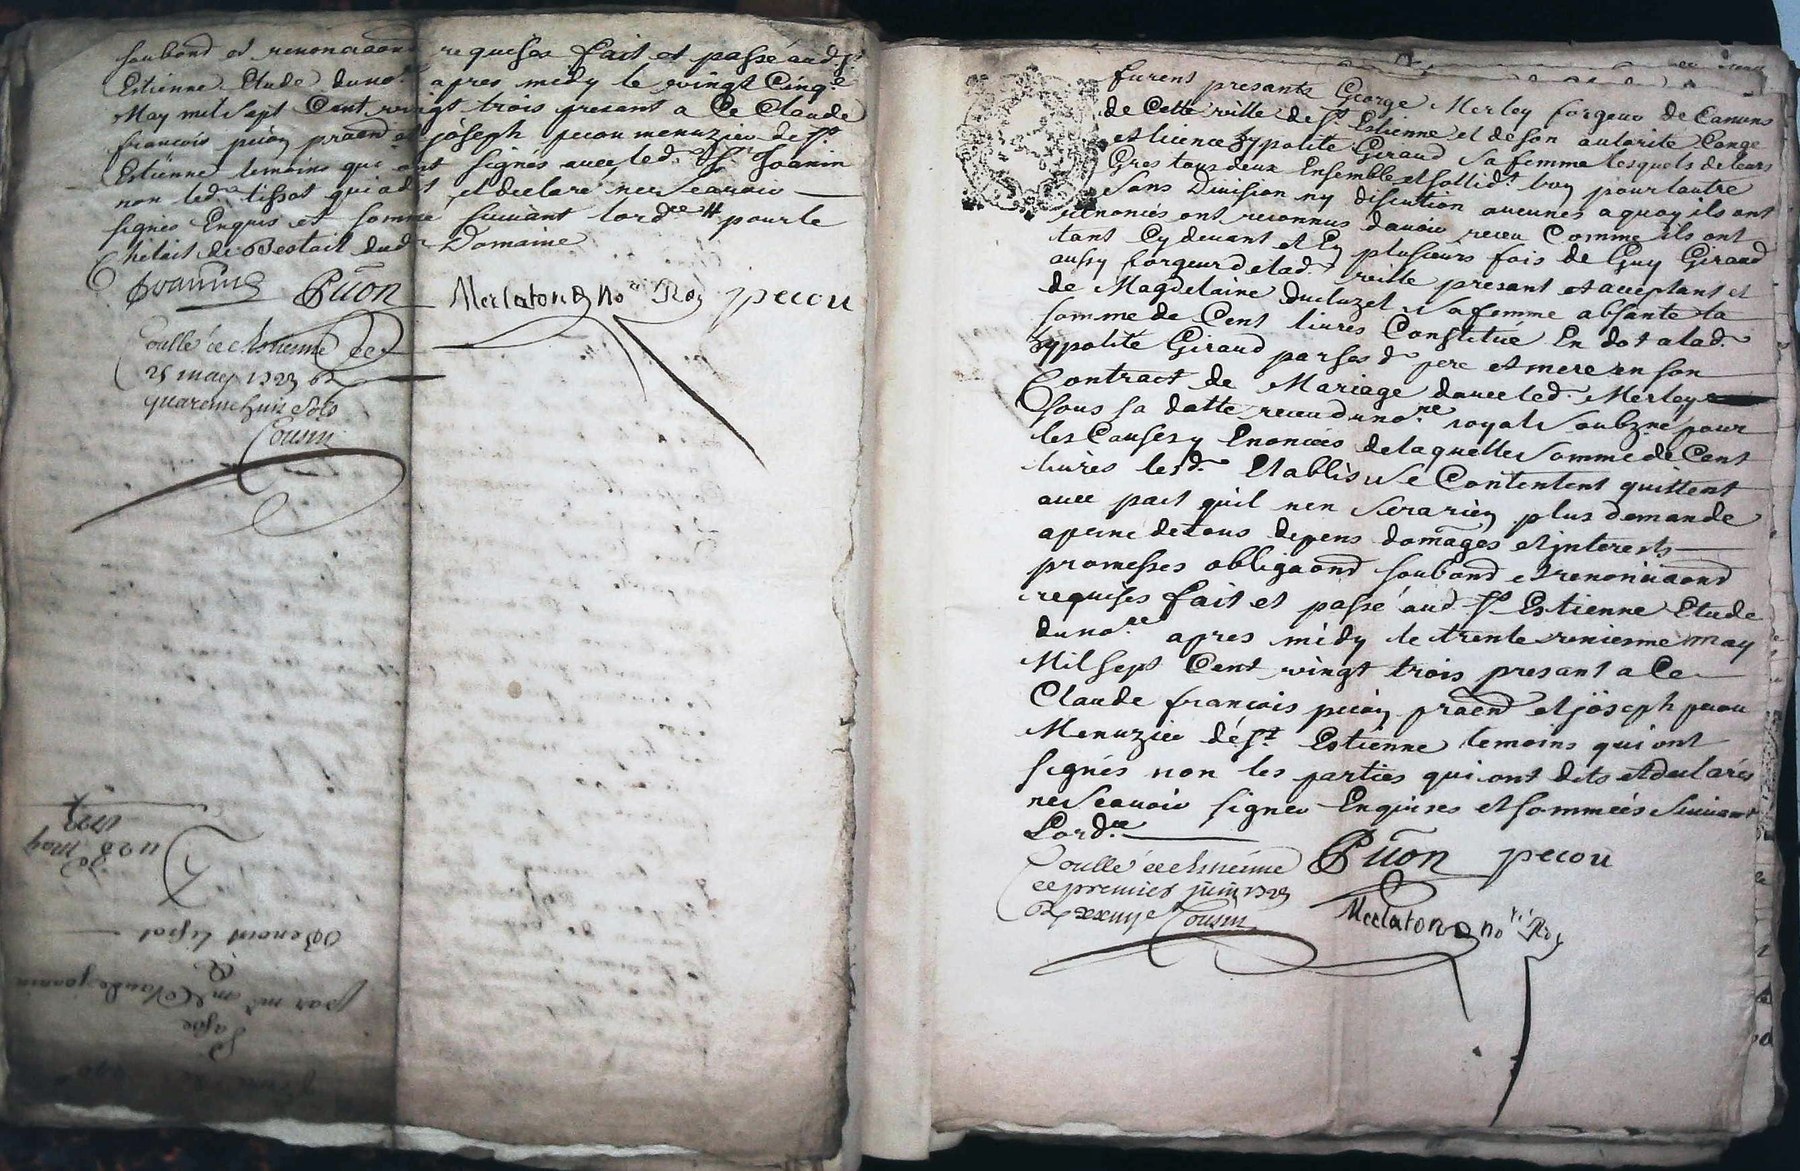 soubond et renonciaond requises fait et passé aud St
Estienne Etude du no.re apres midy le vingt Cinq.e
May mil sept Cent vingt trois presant a Ce Claude
françois piion pratiend et jöseph pecou menuzier de St
Estienne temoins qui ont signés avec led. Sr Joanin
non led. tissot qui a dit et declaré ne scavoir
signer Enquis et sommé suivant lord.ce # pour le
du Bestail dud. Domaine
Joannin Piion Merlaton no.re Roy. pecou
Collé a St estienne le
25 may 1723
quarente huit sols
Cousin
1723
du 25
may
Benoist tissot
par me Claude jouanin
furent presants George Merley forgeur de Canons
de Cette ville de St Estienne et de son autorité Conge
et licence hypolite Giraud sa femme lesquels de leurs
Gres tous deux Ensemble et sollid.t lun pour lautre
sans Division ny discution aucunes a quoy ils ont
renoncés ont reconnus davoir receu Comme ils ont
tant Cy devant et En plusieurs fois de Guy Giraud
aussy forgeur de lad. ville presant et acceptant et
de Magdelaine Ducluzel sa femme absante la
somme de Cent livres Constitué En dot a lad.
hypolite Giraud par ses d. pere et mere en son
Contract de Mariage davec led. Merley
sous sa datte receu du no.re royal soubz.né pour
les Causes y Enoncées de laquelle somme de Cent
livres lesd. Etablis se Contentent quittent
avec pact quil nen sera rien plus demande
a peine de tous depens domages et interests
promesses obligaond soubond et renonciaond
requises fait et passé aud. St Estienne Etude
du no.re apres midy le trente unieme may
Mil sept Cent vingt trois presant a Ce
Claude françois piion pratiend et jöseph pecou
Menuzier de St. Estienne temoins qui ont
signés non les parties qui ont dits et declarés
ne scavoir signer Enquises et sommées suivant
Lord.ce
Piion pecou
Collé a St estienne
le premier juin 1723
Cousin
Merlaton no.re Roy